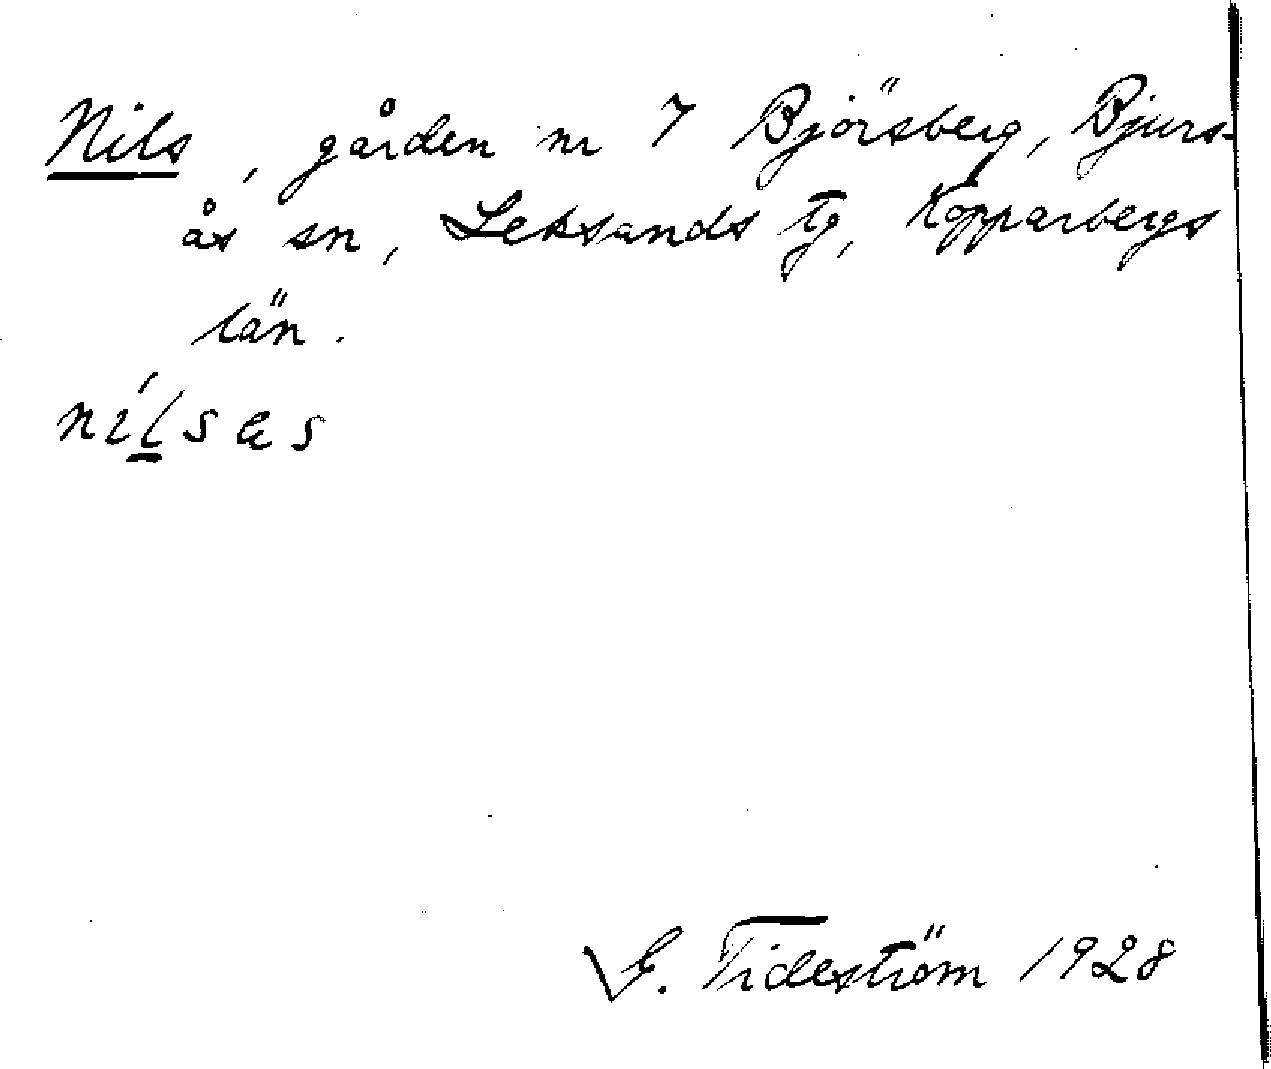 Nils, gården nr 7 Björsberg, Bjurs-
ås sn, Leksands tg, Kopparbergs
län.
nílsas
G. Tideström 1928